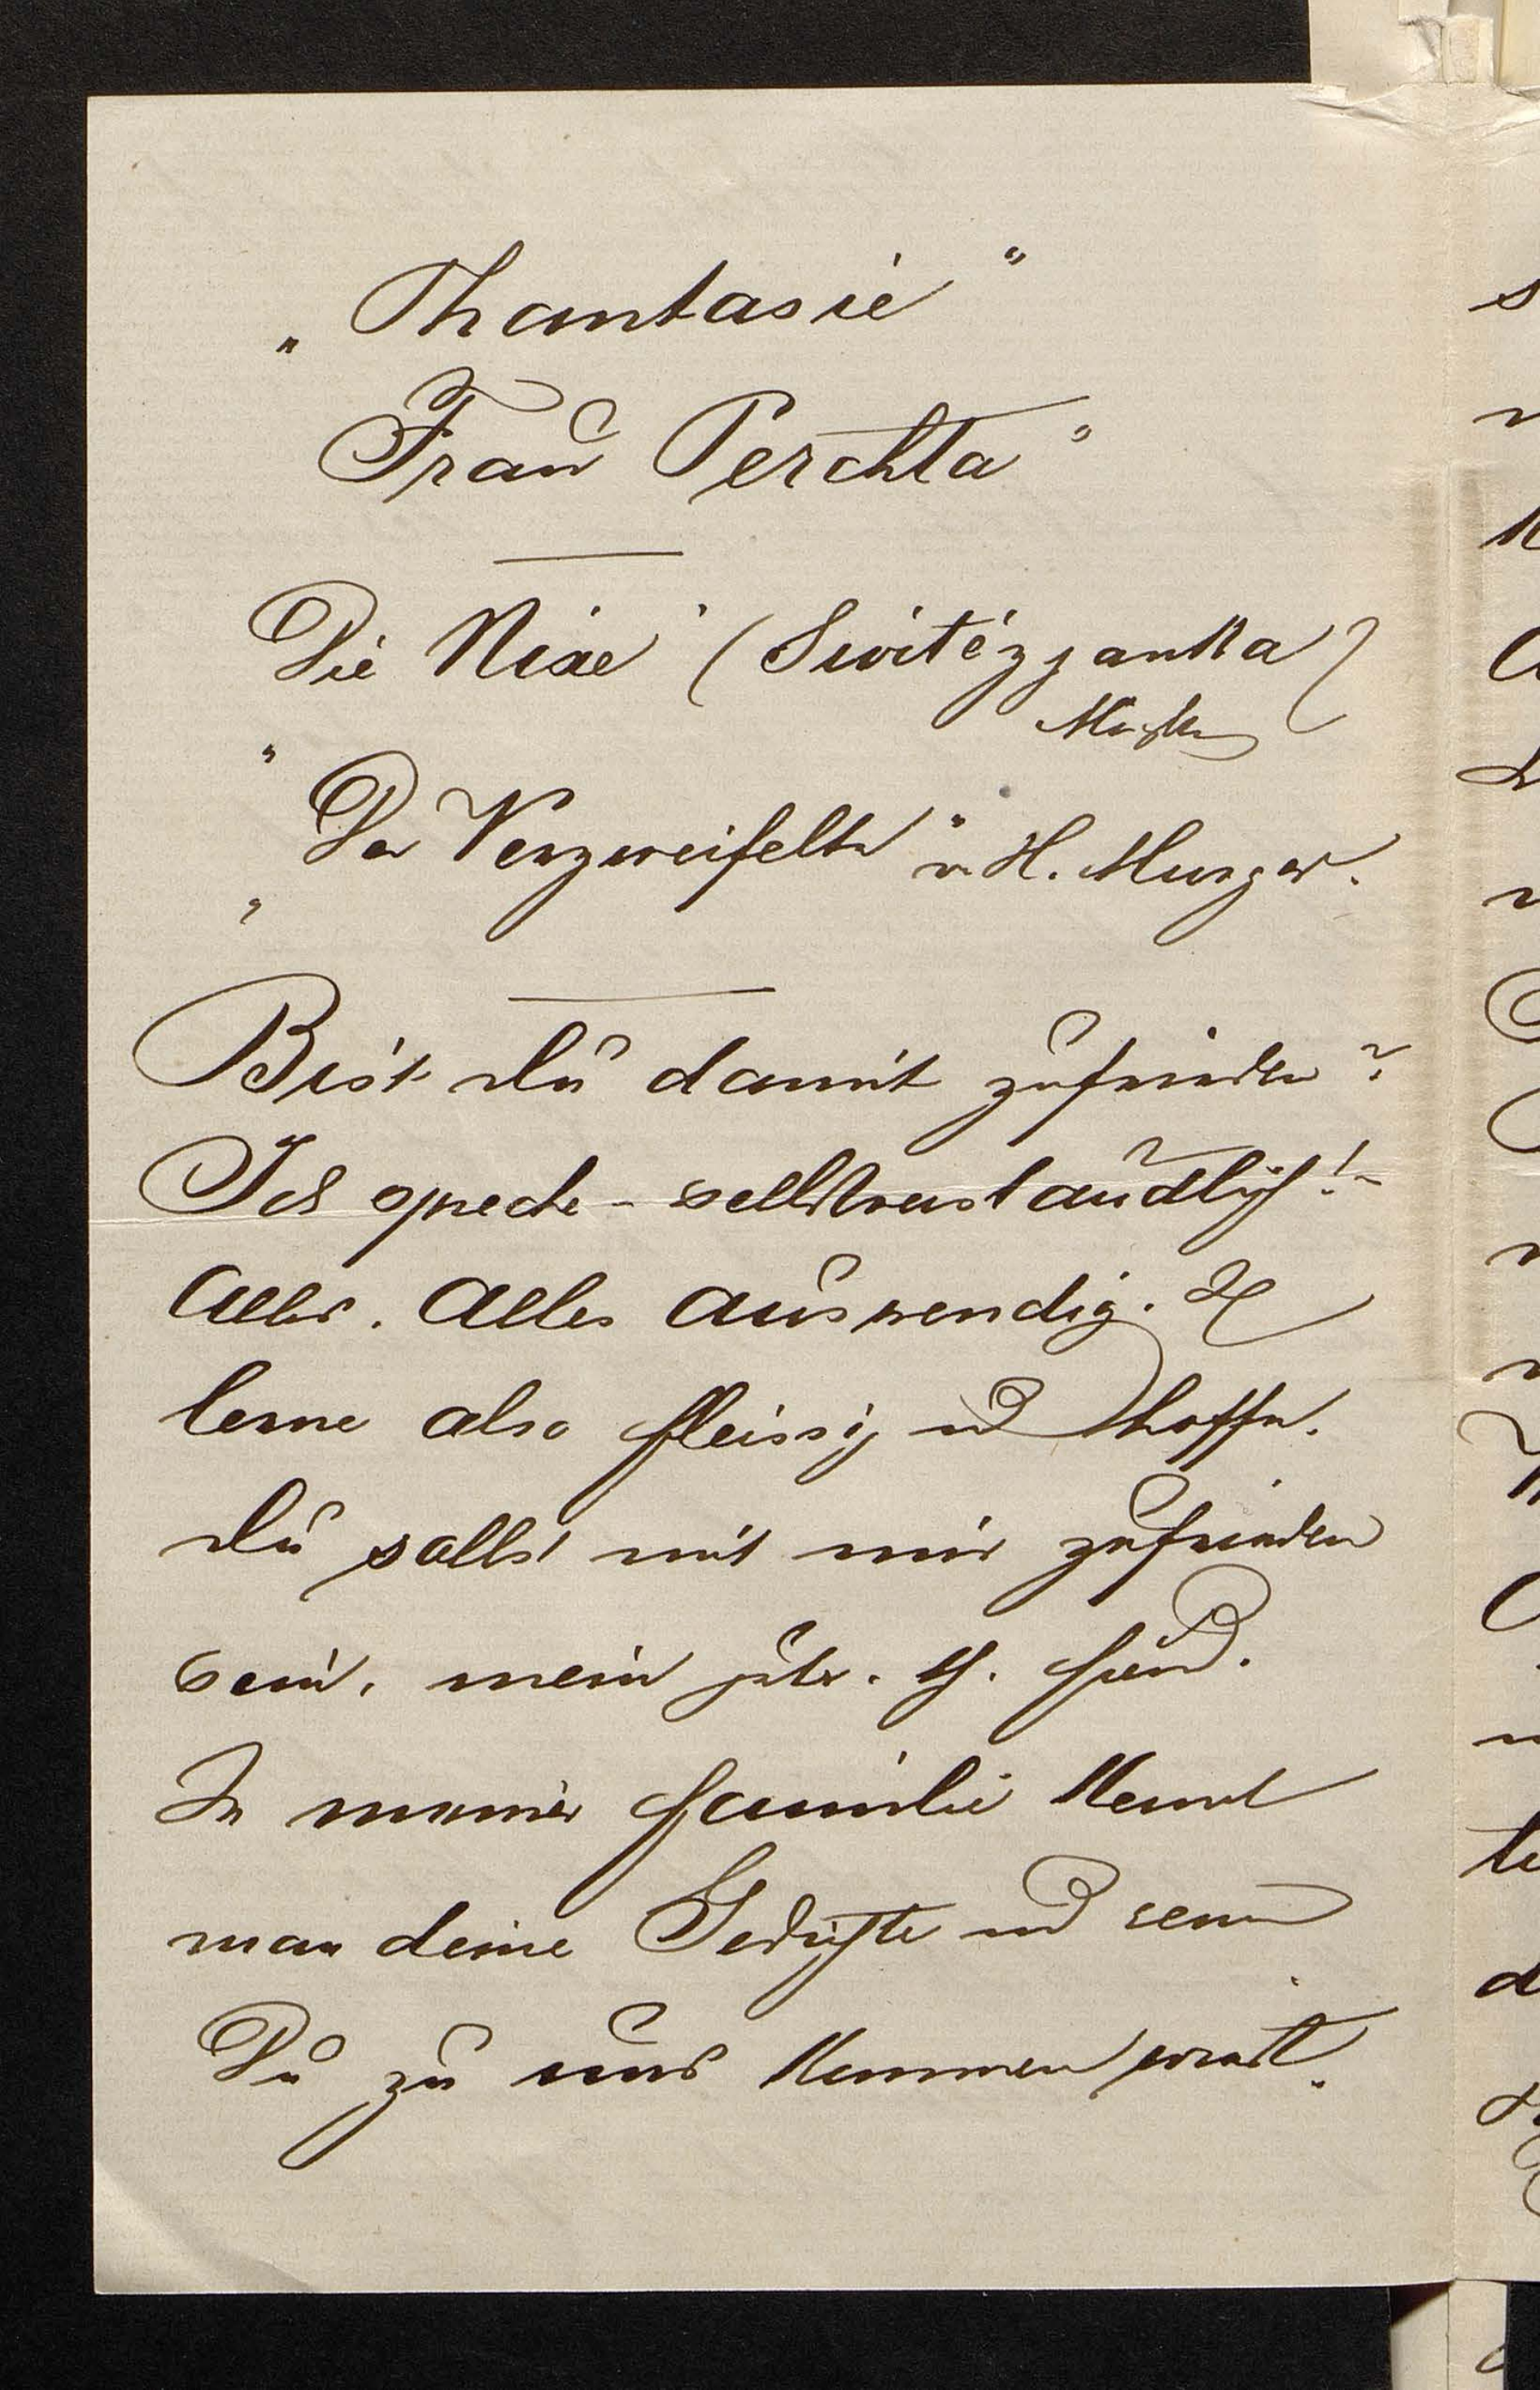 „Phantasie“
Frau Perchta“
Die Nixe“ (Switézjanka)
„Der Verzweifelte“ v. H. Murger.
Bist du damit zufrieden?
Ich spreche – selbstverständlich! –
Alles. Alles auswendig. Ich
lerne also fleissig und hoffe,
du sollst mit mir zufrieden
sein, mein guter.
In meiner Familie kennt
man deine Gedichte und
Du zu uns kommen wirst.